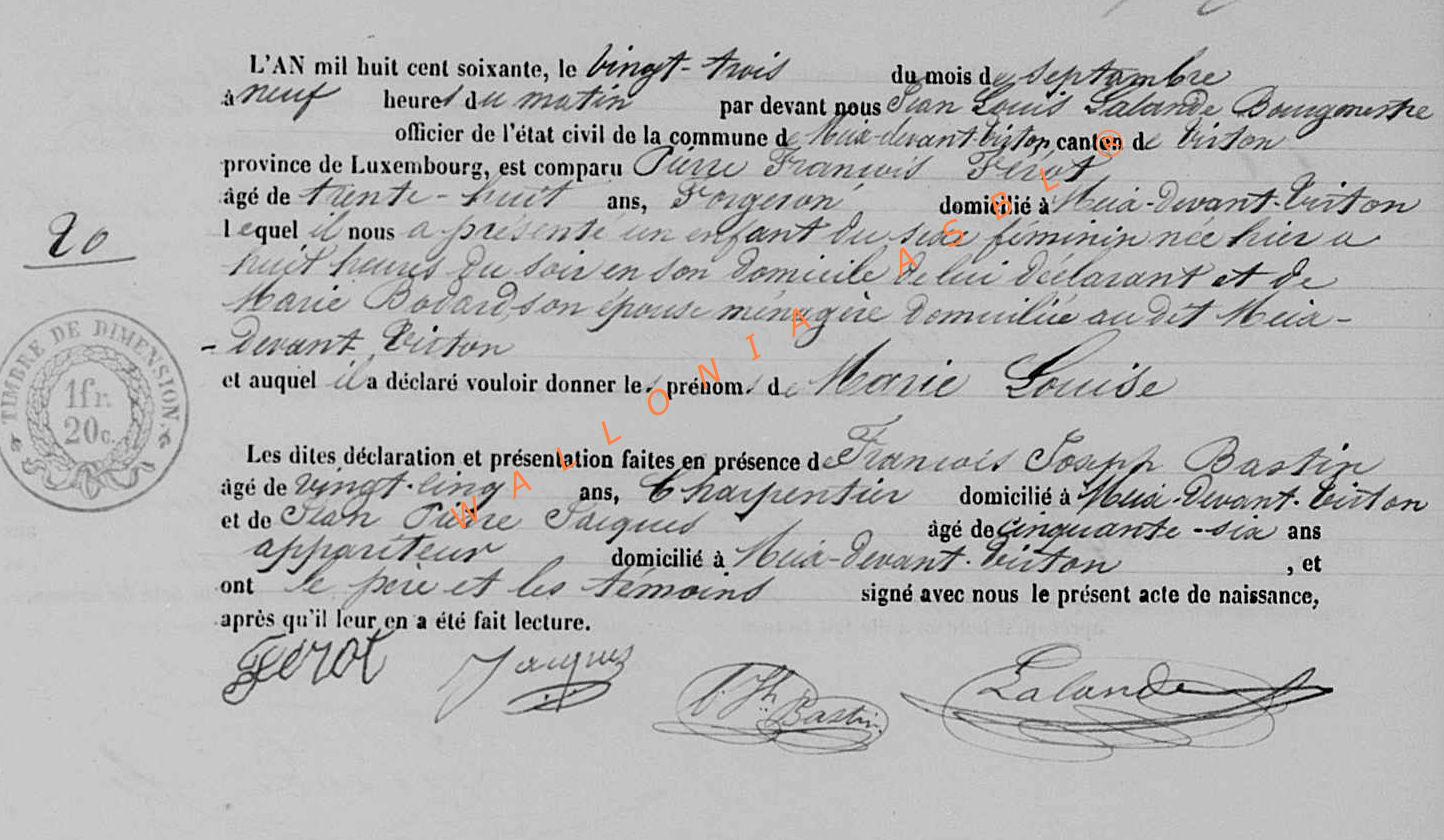 L'AN mil huit cent soixante, le vingt-trois du mois de septembre
à neuf heures du matin par devant nous Jean Louis Lalande Bourgmestre
officier de l'état civil de la commune de Meix-devant-Virton, canton de Virton
province de Luxembourg, est comparu Pierre François Férot
âgé de trente-huit ans, Forgeron domicilié à Meix-Devant-Virton
lequel il nous a présenté un enfant du sexe féminin née hier a
huit heures du soir en son domicile de lui déclarant et de
20
Marie Bodard, son épouse ménagère domiciliée au dit Meix-
-Devant Virton
et auquel il a déclaré vouloir donner les prénoms de Marie Louise
TIMBRE DE DIMENSION
1fr.
20c.
Les dites déclaration et présentation faites en présence de François Joseph Bastin
âgé de vingt-cinq ans, Charpentier domicilié à Meix-Devant-Virton
et de Jean Pierre Jacques âgé de cinquante-six ans
appariteur domicilié à Meix-Devant-Virton, et
ont le père et les témoins signé avec nous le présent acte de naissance,
après qu'il leur en a été fait lecture.
Férot Jacques Bastin Lalande
WALLONIA ASBL ©